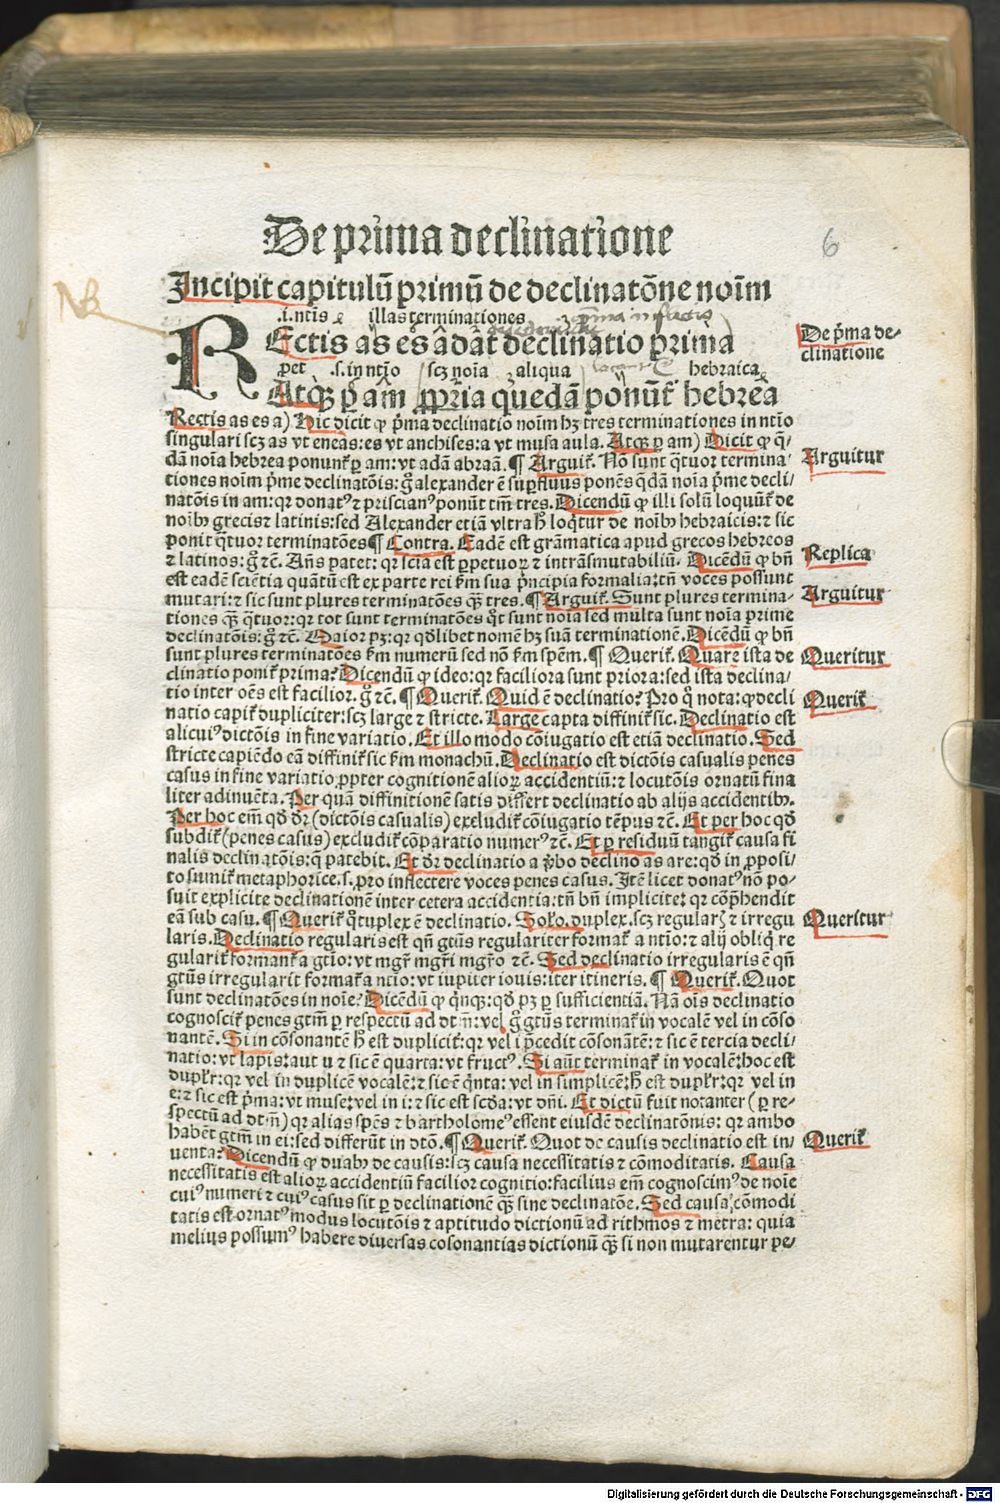 De prima declinatione
6
Incipit capitulū primū de declinatōne noīm
.i. ntīs ⁊ illas terminationes
REctis as es a dat declinatio prima
De p̄ma de⸗
clinatione
ꝓpet .s. in ntīo scꝫ noīa aliqua hebraica
Atqꝫ ꝑ am ꝓpria quedam ponūt᷑ hebrea
Rectis as es a) Hic dicit ꝙ p̄ma declinatio noīm hꝫ tres terminationes in ntīo
singulari scꝫ as vt eneas: es vt anchises: a vt musa aula. Atqꝫ ꝑ am) Dicit ꝙ q̄⸗
dā noīa hebrea ponunt᷑ ꝑ am: vt adā abraā. ¶ Arguit᷑. Nō sunt q̄tuor termina⸗
Arguitur
tiones noīm p̄me declinatōis: g̊ alexander ē suꝑfluus ponēs q̄dā noīa p̄me decli⸗
natōis in am: qꝛ donatꝰ ⁊ priscianꝰ ponūt tm̄ tres. Dicendū ꝙ illi solū loquūt᷑ de
noībꝫ grecis ⁊ latinis: sed Alexander etiā vltra h̊ loq̄tur de noībꝫ hebraicis: ⁊ sic
ponit q̄tuor terminatōes ¶ Contra. Eadē est grāmatica apud grecos hebreos
Replica
⁊ latinos: g̊ ⁊c̄. Añs patet: qꝛ scīa est ꝑpetuoꝝ ⁊ intrāsmutabiliū. Dicēdū ꝙ bn̄
est eadē sciētia quātū est ex parte rei ẜm sua p̄ncipia formalia: tn̄ voces possunt
mutari: ⁊ sic sunt plures terminatōes qꝫ̄ tres. ¶ Arguit᷑. Sunt plures termina⸗
Arguitur
tiones qꝫ̄ q̄tuor: qꝛ tot sunt terminatōes q̄t sunt noīa sed multa sunt noīa prime
declinatōis: g̊ ⁊c̄. Maior pꝫ: qꝛ qđlibet nomē hꝫ suā terminationē. Dicēdū ꝙ bn̄
sunt plures terminatōes ẜm numerū sed nō ẜm spēm. ¶ Querit᷑. Quare ista de
Queritur
clinatio ponit᷑ prima? Dicendū ꝙ ideo: qꝛ faciliora sunt priora: sed ista declina⸗
tio inter oēs est facilior. g̊ ⁊c̄. ¶ Querit᷑. Quid ē declinatio? Pro q̊ nota: ꝙ decli
Querit᷑
natio capit᷑ dupliciter: scꝫ large ⁊ stricte. Large capta diffinit᷑ sic. Declinatio est
alicuiꝰ dictōis in fine variatio. Et illo modo cōiugatio est etiā declinatio. Sed
stricte capiēdo eā diffinit᷑ sic ẜm monachū. Declinatio est dictōis casualis penes
casus in fine variatio ꝓpter cognitionē alioꝝ accidentiū: ⁊ locutōis ornatū fina
liter adinuēta. Per quā diffinitionē satis differt declinatio ab alijs accidentibꝫ.
Per hoc em̄ qđ dr̄ (dictōis casualis) excludit᷑ cōiugatio tēpus ⁊c̄. Et per hoc qđ
subdit᷑ (penes casus) excludit᷑ cōparatio numerꝰ ⁊c̄. Et ꝑ residuū tangit᷑ causa fi
nalis declinatōis: q̄ patebit. Et dr̄ declinatio a v̄bo declino as are: qđ in ꝓposi⸗
to sumit᷑ metaphorice. s. pro inflectere voces penes casus. Itē licet donatꝰ nō po⸗
suit explicite declinationē inter cetera accidentia: tn̄ bn̄ implicite: qꝛ cōp̄hendit
eā sub casu. ¶ Querit᷑ q̄tuplex ē declinatio. Solꝰo. duplex. scꝫ regularꝭ ⁊ irregu
Queritur
laris. Declinatio regularis est qn̄ gtūs regulariter format᷑ a ntīo: ⁊ alij obliqui re
gularit᷑ formant᷑ a gtīo: vt mgr̄ mgr̄i mgr̄o ⁊c̄. Sed declinatio irregularis ē qn̄
gtūs irregularit᷑ format᷑ a ntīo: vt iupiter iouis: iter itineris. ¶ Querit᷑. Quot
sunt declinatōes in noīe? Dicēdū ꝙ q̄nqꝫ: qđ pꝫ ꝑ sufficientiā. Nā oīs declinatio
cognoscit᷑ penes gtm̄ ꝑ respectū ad dtm̄: vel g̊ gtūs terminat᷑ in vocalē vel in cōso
nantē. Si in cōsonantē h̊ est duplicit᷑: qꝛ vel i p̄cedit cōsonātē: ⁊ sic ē tercia decli⸗
natio: vt lapis: aut u ⁊ sic ē quarta: vt fructꝰ. Si aūt terminat᷑ in vocalē: hoc est
duplr̄: qꝛ vel in duplicē vocalē: ⁊ sic ē q̄nta: vel in simplicē: h̊ est duplr̄: qꝛ vel in
e: ⁊ sic est p̄ma: vt muse: vel in i: ⁊ sic est scđa: vt dn̄i. Et dictū fuit notanter (ꝑ re⸗
spectū ad dtm̄) qꝛ alias spēs ⁊ bartholomeꝰ essent eiusdē declinatōnis: qꝛ ambo
habēt gtm̄ in ei: sed differūt in dtō. ¶ Querit᷑. Quot de causis declinatio est in⸗
Querit᷑
uenta? Dicendū ꝙ duabꝫ de causis: scꝫ causa necessitatis ⁊ cōmoditatis. Causa
necessitatis est alioꝝ accidentiū facilior cognitio: facilius em̄ cognoscimꝰ de noīe
cuiꝰ numeri ⁊ cuiꝰ casus sit ꝑ declinationē qꝫ̄ sine declinatōe. Sed causa cōmodi
tatis est ornatꝰ modus locutōis ⁊ aptitudo dictionū ad rithmos ⁊ metra: quia
melius possumꝰ habere diuersas cōsonantias dictionū qꝫ̄ si non mutarentur pe⸗
Digitalisierung gefördert durch die Deutsche Forschungsgemeinschaft - DFG